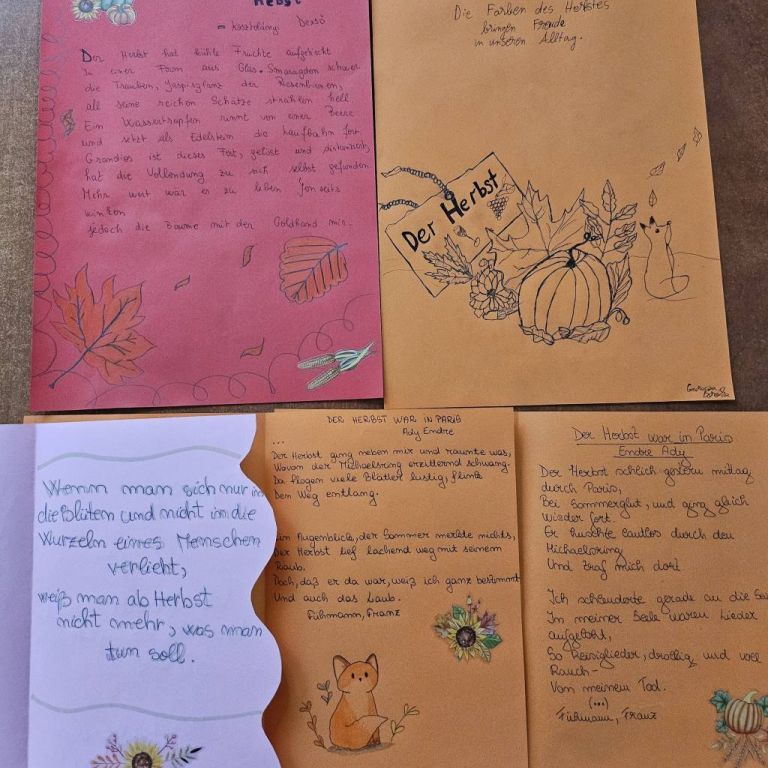 Herbst
- Kosztolányi Dezső
Der Herbst hat kühle Früchte aufgetischt
In einer Form aus Glas. Smaragden schwer
die Trauben, Jaspisglanz der Riesenbirnen,
all seine reichen Schätze strahlen hell
Ein Wassertropfen rinnt von einer Beere
und setzt als Edelstein die Laufbahn fort
Grandios ist dieses Fest, gelöst und distanziert,
hat die Vollendung zu sich selbst gefunden
Mehr wert war es zu leben Jenseits
winken
jedoch die Bäume mit der Goldhand mir.
Die Farben des Herbstes
bringen Freude
in unseren Alltag.
Der Herbst
Wenn man sich nur in
die Blüten und nicht in die
Wurzeln eines Menschen
verliebt,
weiß man ab Herbst
nicht mehr, was man
tun soll.
DER HERBST WAR IN PARIS
Ady Endre
...
Der Herbst ging neben mir und raunte was,
Wovon der Michaelsring erzitternd schwang.
Da flogen viele Blätter lustig, flink
Den Weg entlang.
Ein Augenblick, der Sommer merkte nichts,
Der Herbst lief lachend weg mit seinem
Raub.
Doch, daß er da war, weiß ich ganz bestimmt
Und auch das Laub.
Fühmann, Franz
Der Herbst war in Paris
Endre Ady
Der Herbst schlich gestern mittag
durch Paris,
Bei Sommerglut, und ging gleich
wieder fort.
Er huschte lautlos durch den
Michaelsring
Und traf mich dort
Ich schlenderte gerade an die Sei
In meiner Seele waren Lieder
aufgeloht,
So Reisiglieder, drollig und voll
Rauch -
Von meinem Tod.
(...)
Fühmann, Franz